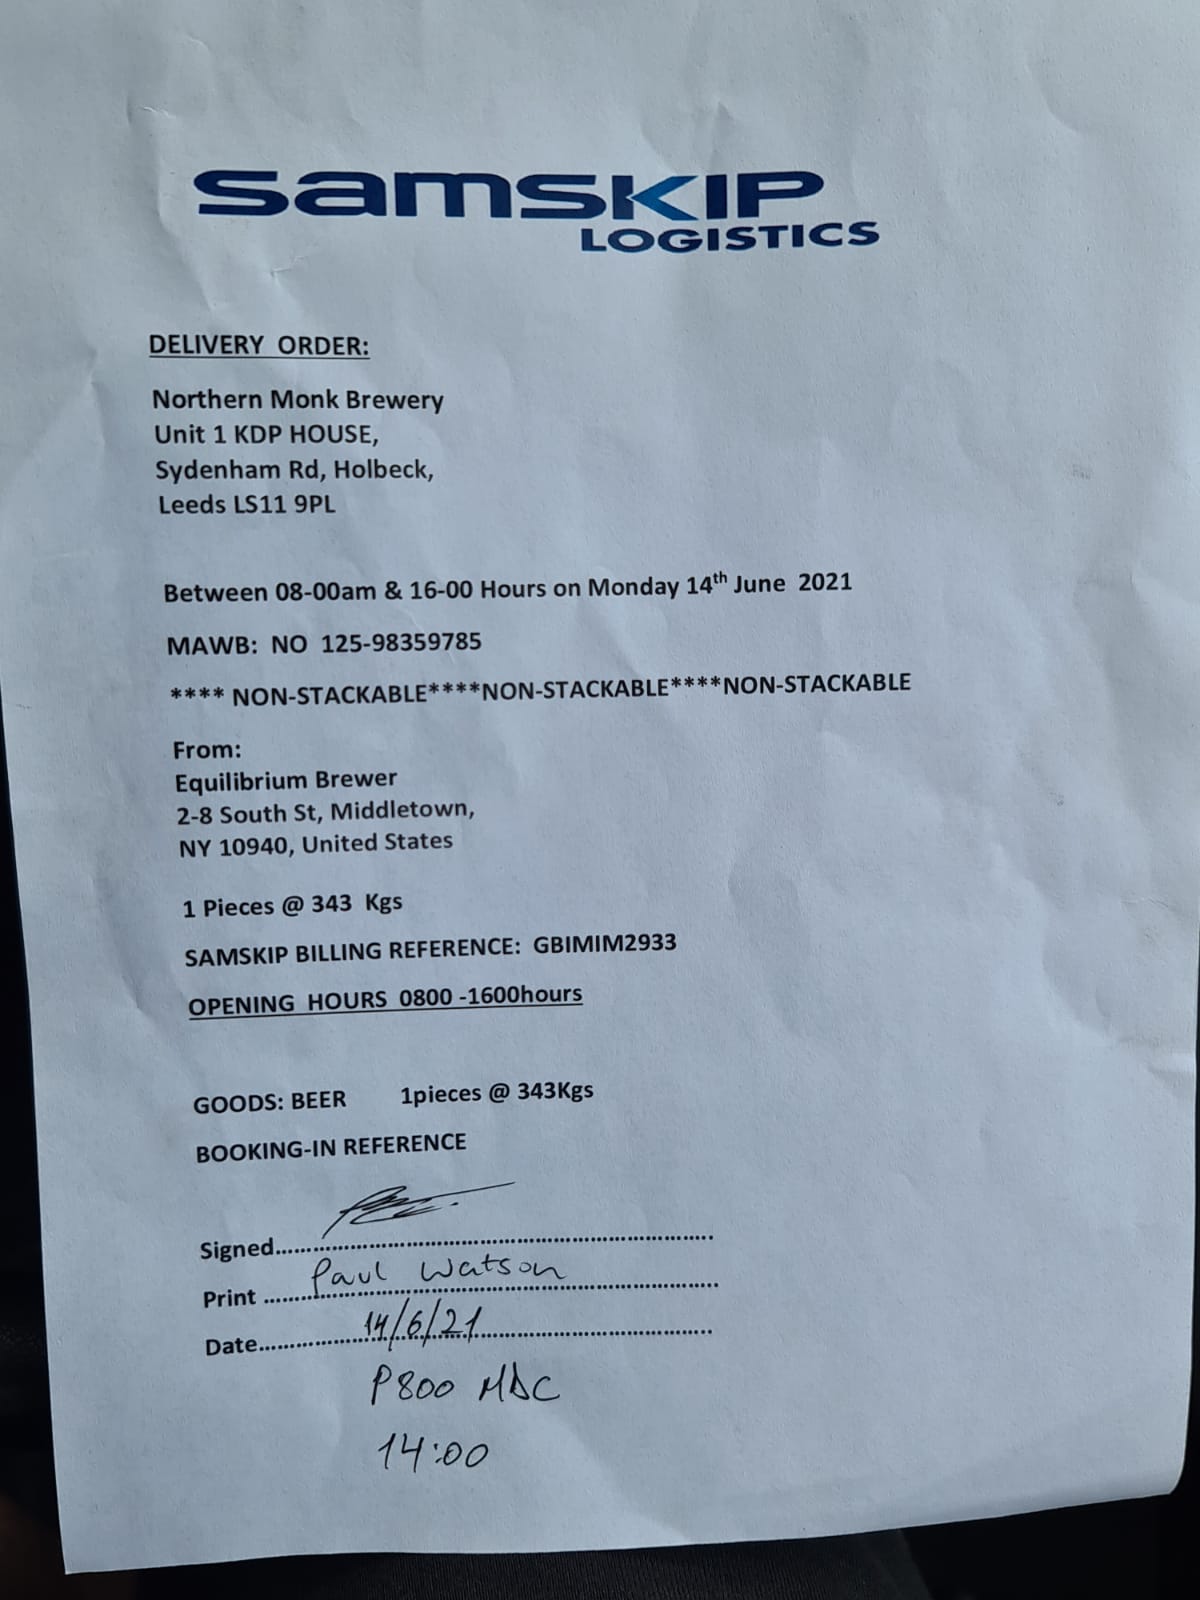 samskip
LOGISTICS
DELIVERY ORDER:
Northern Monk Brewery
Unit 1 KDP HOUSE,
Sydenham Rd, Holbeck,
Leeds LS11 9PL
Between 08-00am & 16-00 Hours on Monday 14th June 2021
MAWB: NO 125-98359785
**** NON-STACKABLE****NON-STACKABLE****NON-STACKABLE
From:
Equilibrium Brewer
2-8 South St, Middletown,
NY 10940, United States
1 Pieces @ 343 Kgs
SAMSKIP BILLING REFERENCE: GBIMIM2933
OPENING HOURS 0800 -1600hours
GOODS: BEER 1pieces @ 343Kgs
BOOKING-IN REFERENCE
Signed
Print Paul Watson
Date 14/6/21
P800 MDC
14:00